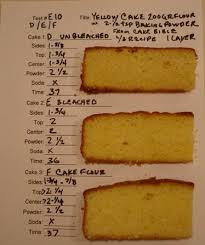 Test #: E10 Title: YELLOW CAKE 200GR FLOUR
D/E/F 2-1/2 tsp BAKING POWDER
FROM CAKE BIBLE
Cake 1: D UNBLEACHED 1/2 RECIPE 1 LAYER
Sides: 1-3/8
Top:
Center: 1-3/4
Powder: 2 1/2
Soda: X
Time: 37
Cake 2: E BLEACHED
Sides: 1-3/8
Top: 2
Center: 2
Powder: 2 1/2
Soda: X
Time: 36
Cake 3: F CAKE FLOUR
Sides: 1-3/4 - 7/8
Top: 2 1/4
Center: 2-1/4
Powder: 2 1/2
Soda: X
Time: 37